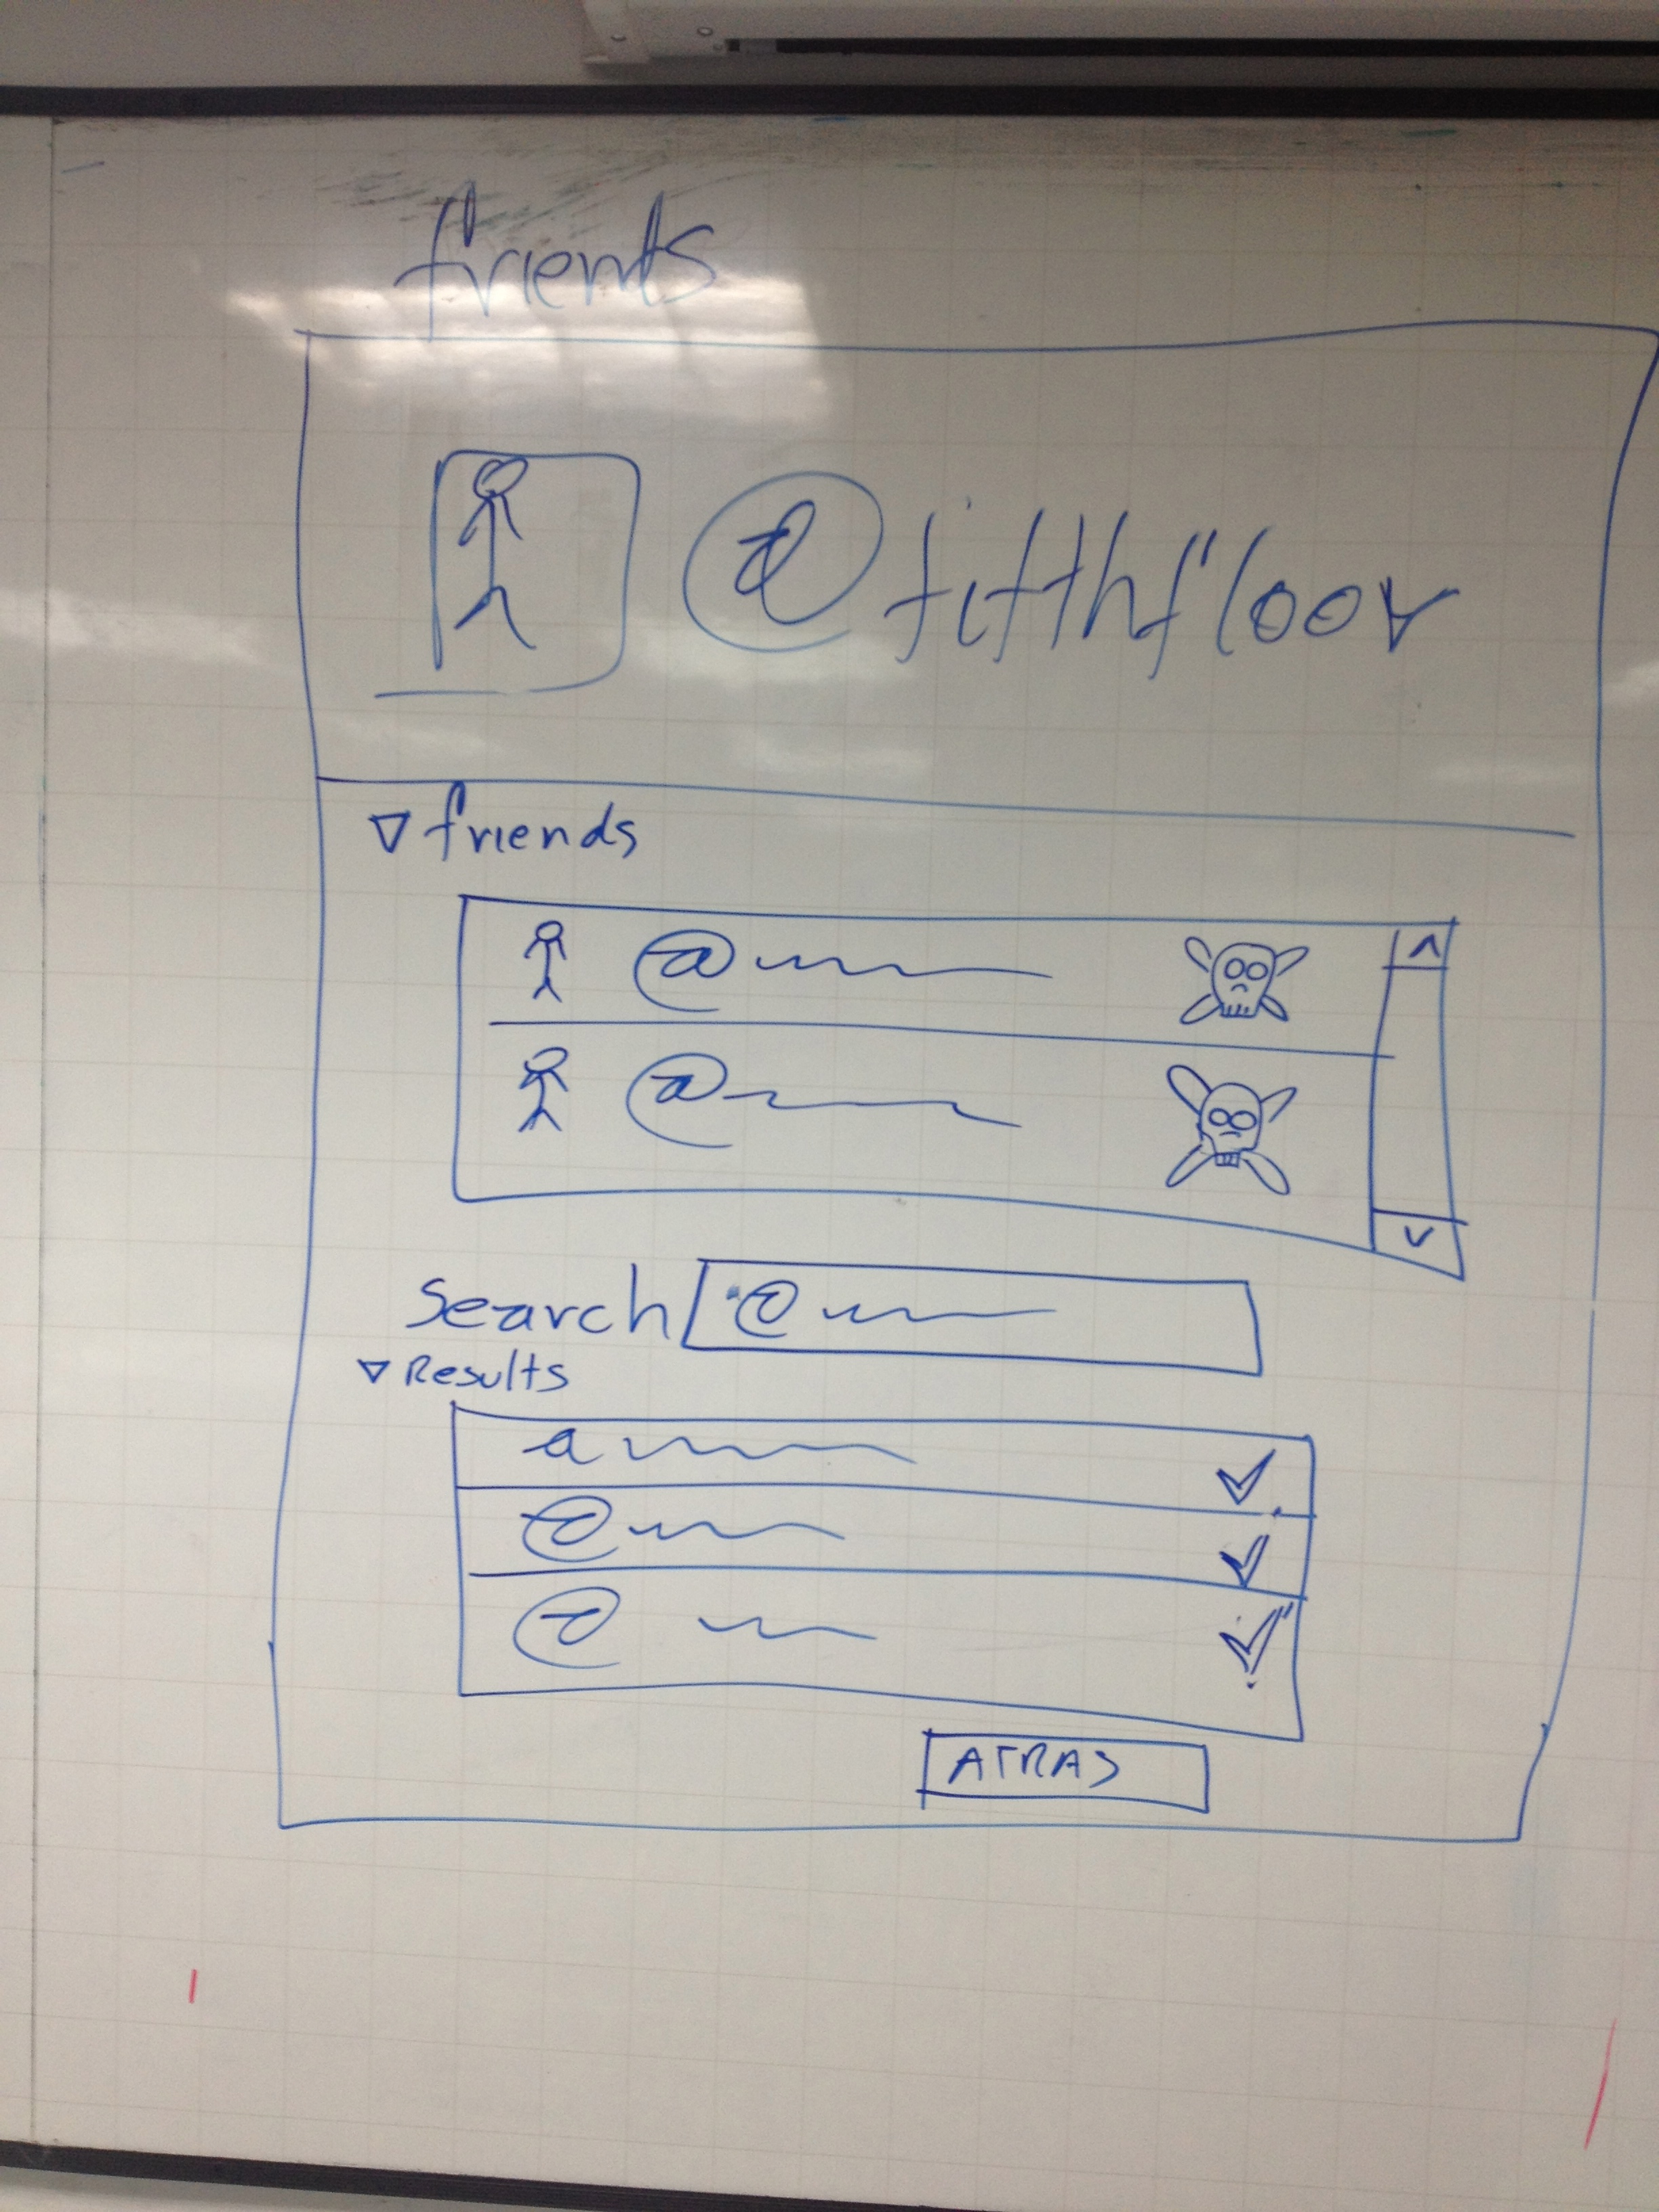 friends
@fifthfloor
friends
@
@
Search @
Results
a
@
@
ATRAS